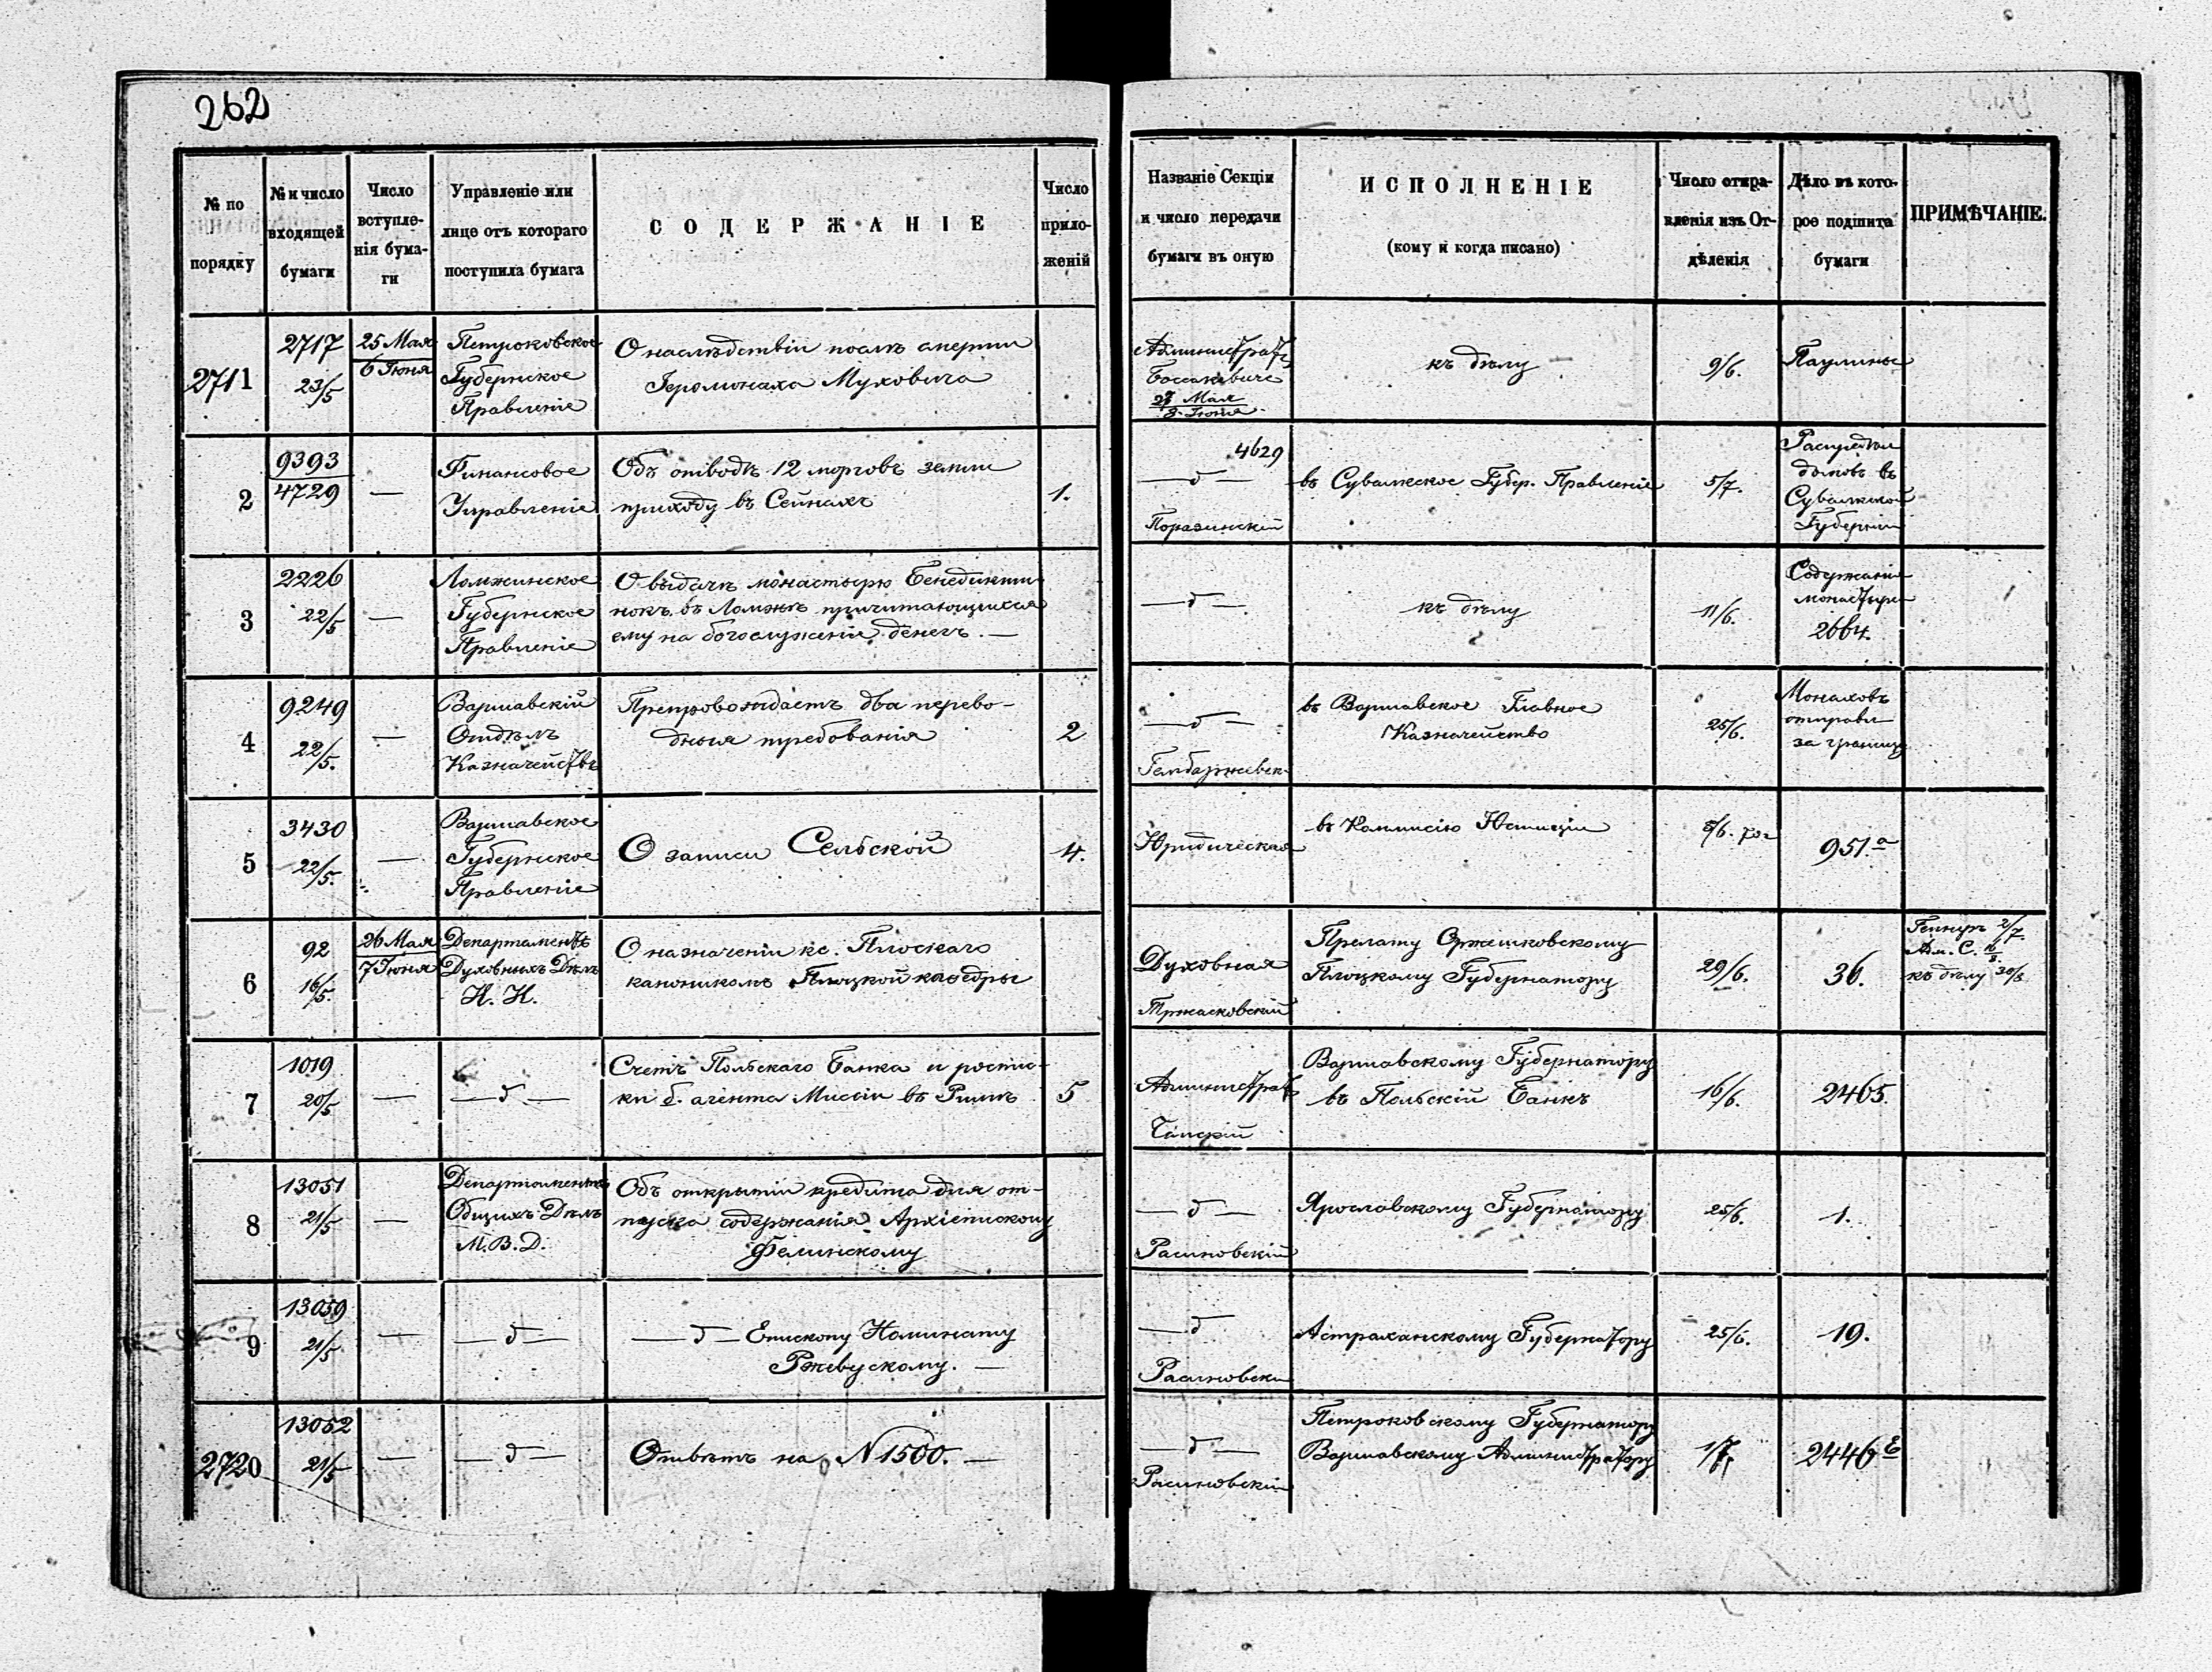 262
№ по порядку
№ и число входящей бумаги
Число вступле-нія бума-ги
Управленіе или лице отъ котораго поступила бумага
СОДЕРЖАНІЕ
Число прило-женій
Названіе Секціи и число передачи бумаги въ оную
ИСПОЛНЕНІЕ
(кому и когда писано)
Число отпра-вленія изъ От-дѣленія
Дѣло въ кото-рое подшита бумага
ПРИМѢЧАНІЕ.
2711
2717
23/5
25 Мая
6 Іюня
Петроковское
Губернское
Правленіе
О наслѣдствіи послѣ смерти
Іеромонаха Муховича
27 Мая
8 Іюня
къ дѣлу
9/6.
Паулины
2
9393
4729
—
Финансовое
Управленіе
Объ отводѣ 12 морговъ земли
приходу въ Сейнахъ
1.
4629
— д —
въ Сувалкское Губер. Правленіе
5/7.
домовъ въ
Сувалкской
Губерніи
3
2226
22/5
—
Ломжинское
Губернское
Правленіе
О выдачѣ монастырю Бенедикти-
нокъ въ Ломжѣ причитающихся
ему на богослуженіе денегъ. —
— д —
къ дѣлу
11/6.
Содержанія
монастыря
2664.
4
9249
22/5.
—
Варшавскій
Отдѣлъ
Казначействъ
Препровождаетъ два перево-
дныя требованія
2
— д —
въ Варшавское Главное
Казначейство
25/6.
Монаховъ
отправл
за границу
5
3430
22/5.
—
Варшавское
Губернское
Правленіе
О записи Сельской
4.
Юридическая
въ Коммисію Юстиціи
8/6.
951.а
6
92
16/5.
26 Мая
7 Іюня
Департаментъ
Духовныхъ Дѣлъ
И. И.
О назначеніи кс. Плоскаго
каноникомъ Плоцкой каѳедры
Духовная
Тржасковскій
Прелату Оржешковскому
Плоцкому Губернатору
29/6.
36.
2/7.
къ дѣлу 30/8
7
1019
20/5
—
— д —
Счетъ Польскаго Банка и роспис-
ки б. агента Миссіи въ Римѣ
5
Администрат
Варшавскому Губернатору
въ Польскій Банкъ
16/6.
2465.
8
13051
21/5
—
Департаментъ
Общихъ Дѣлъ
М. В. Д.
Объ открытіи кредита для от-
пуска содержанія Архіепископу
Фелинскому
— д —
Расиновскій
Ярославскому Губернатору
25/6.
1.
9
13059
21/5
—
— д —
— д — Епископу Номинату
Ржевускому. —
— д
Астраханскому Губернатору
25/6.
19.
2720
13052
21/5
—
— д —
Отвѣтъ на N 1500. —
— д —
Расиновскій
Петроковскому Губернатору
Варшавскому Администратору
1/7.
2446 Е